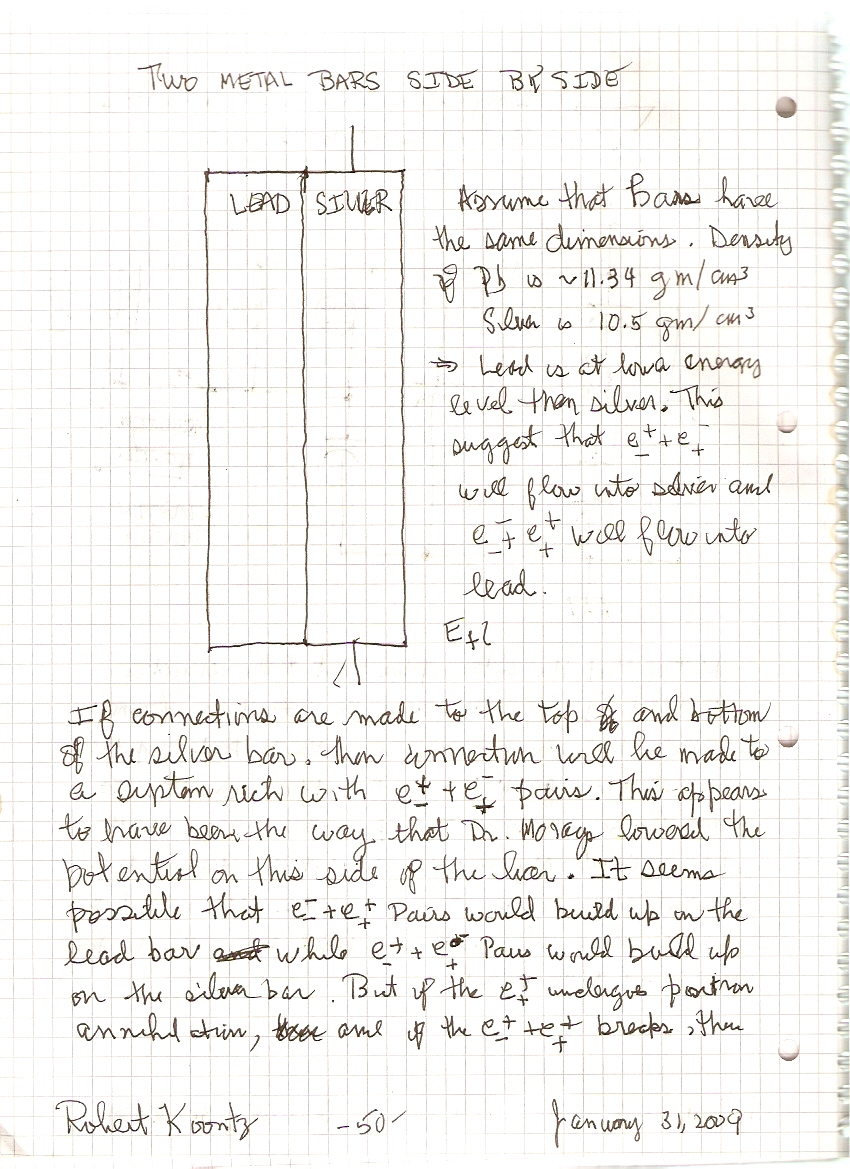 TWO METAL BARS SIDE BY SIDE
LEAD SILVER
Assume that Bars have
the same dimensions. Density
of Pb is ~11.34 gm/cm³
Silver is 10.5 gm/cm³
⇒ Lead is at lower energy
level than silver. This
suggest that e⁺₋ + e⁻₊
will flow into silver and
e⁻₋ + e⁺₊ will flow into
lead.
If connections are made to the top and bottom
of the silver bar, then connection will be made to
a system rich with e⁺₋ + e⁻₊ pairs. This appears
to have been the way that Dr. Moray lowered the
potential on this side of the bar. It seems
possible that e⁻₋ + e⁺₊ Pairs would build up on the
lead bar while e⁺₋ + e⁻₊ Pairs would build up
on the silver bar. But if the e⁺₊ undergoes positron
annihilation, and if the e⁺₋ + e⁺₊ breaks, then
Robert Koontz -50- January 31, 2009